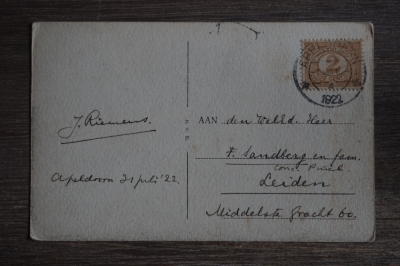 J. Riemens.
Apeldoorn 21 juli '22.
AAN den WelEd. Heer
F. Sandberg en fam.
Leiden
Middelste Gracht 60.
2
1922